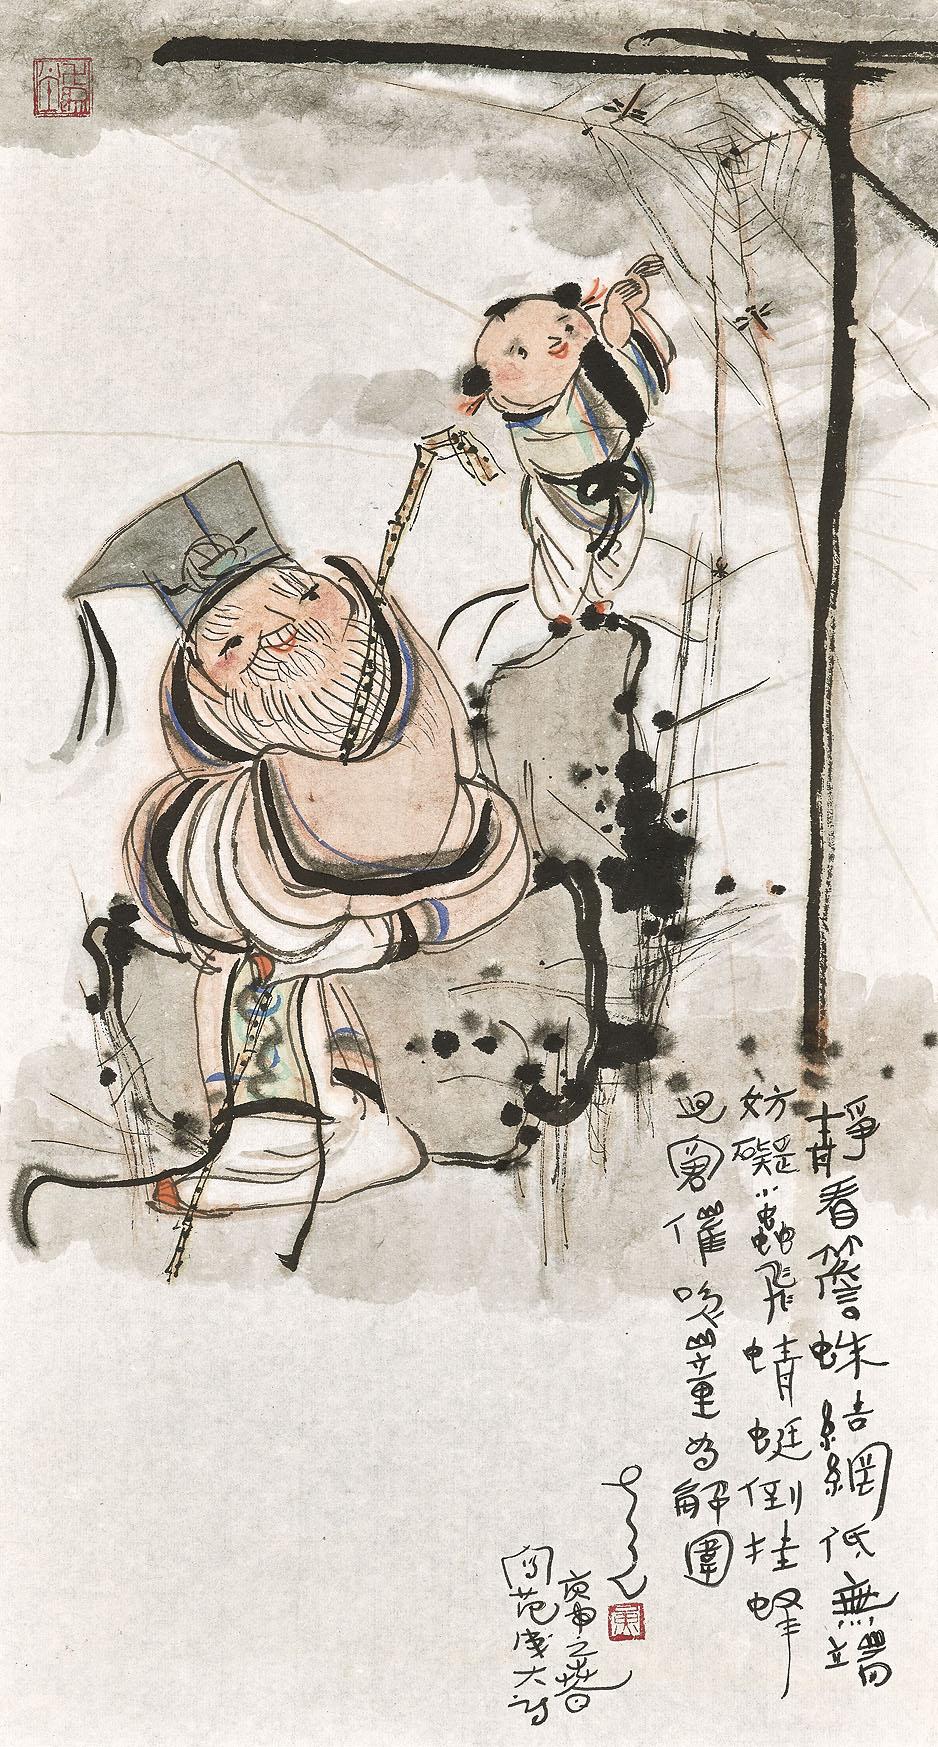 靜看簷蛛結網低無端
妨礙小蟲飛蜻蜓倒挂蜂
兒窘催喚山童為解圍
庚申之春
寫范成大詩